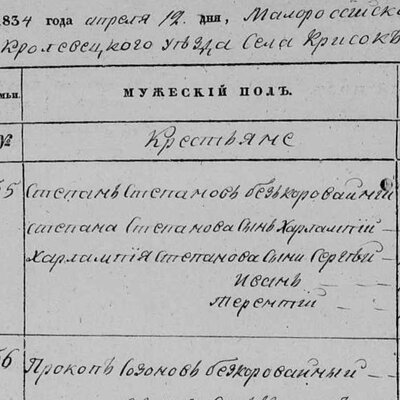 1834 года апреля 12. дня, Малороссійско
Кролевецкого уѣзда Села Крисокъ
мьи.
МУЖЕСКІЙ ПОЛЪ.
№
Крестьяне
55 Степанъ Степановъ безкоровайній
степана Степанова сынъ Харлампій
Харлампія Степанова сыни Сергѣй
Иванъ
Терентій
56 Прокопъ Созоновъ безкоровайный